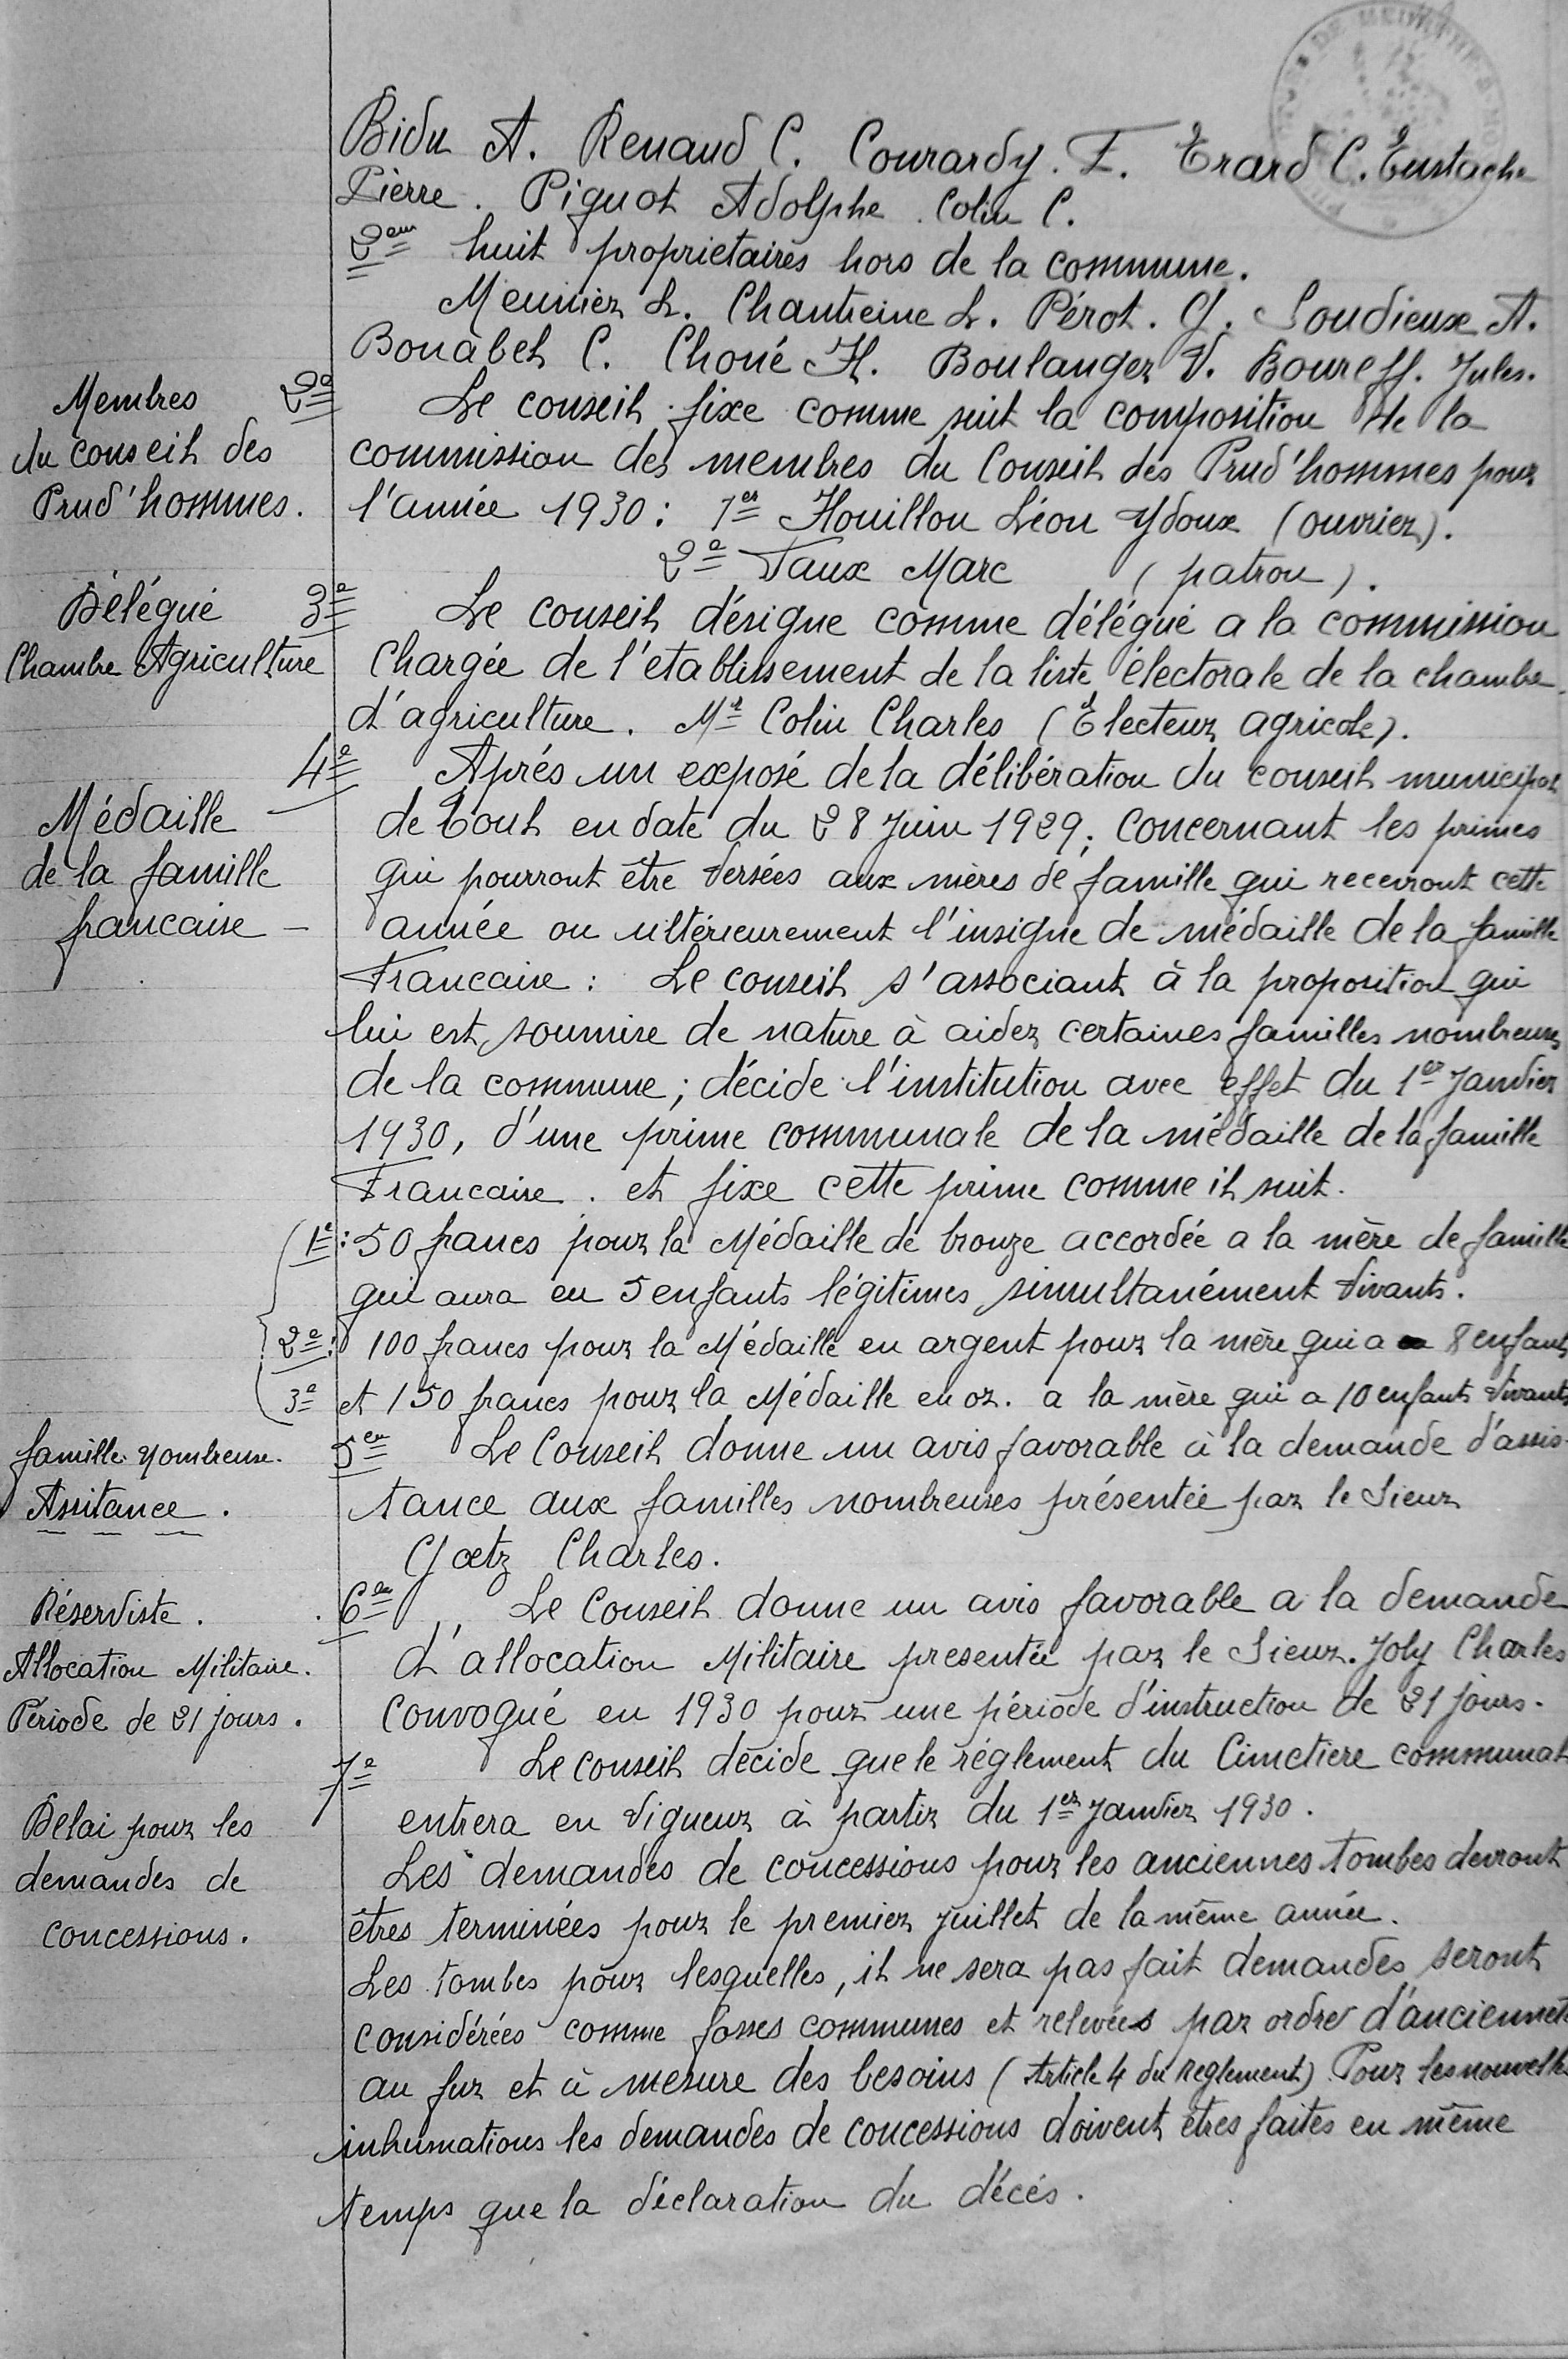 Bidu A. Renaud C. Courardy. F. Erard C. Eustache
Pierre. Piquot Adolphe. Colin C.
2em huit proprietaires hors de la commune.
Meunier L. Chantreine L. Pérot. G. Soudieux A.
Bouabel C. Choné H. Boulanger V. Boureff. Jules.
Membres
du conseil des
Prud'hommes.
2e Le conseil fixe comme suit la composition de la
commission des membres du Conseil des Prud'hommes pour
l'année 1930: 1er Houillon Léon Ydoux (ouvrier).
2e Taux Marc (patron).
Délégué
Chambre Agriculture
3e Le conseil désigne comme délégué a la commission
Chargée de l'etablissement de la liste électorale de la chambre
d'agriculture. Mr Colin Charles (Electeur agricole).
Médaille
de la famille
francaise -
4e Aprés un exposé de la délibération du conseil municipal
de Toul en date du 28 Juin 1929; Concernant les primes
qui pourront être versées aux mères de famille qui recevront cette
année ou ultérieurement l'insigne de médaille de la famille
Francaise: Le conseil s'associant à la proposition qui
lui est soumise de nature à aider certaines familles nombreuses
de la commune; décide l'institution avec effet du 1er Janvier
1930, d'une prime communale de la médaille de la famille
Francaise. et fixe cette prime comme il suit.
1e: 50 francs pour la Médaille de bronze accordée a la mère de famille
qui aura eu 5 enfants légitimes simultanément vivants.
2e: 100 francs pour la Médaille en argent pour la mère qui a 8 enfants
3e et 150 francs pour la Médaille en or. a la mère qui a 10 enfants vivants
famille nombreuse.
Assitance.
5em Le Conseil donne un avis favorable à la demande d'assis-
tance aux familles nombreuses présentée par le Sieur
Goetz Charles.
Réserviste.
Allocation Militaire.
Période de 21 jours.
6em Le Conseil donne un avis favorable a la demande
d'allocation Militaire presentée par le Sieur. Joly Charles
Convoqué en 1930 pour une période d'instruction de 21 jours.
Delai pour les
demandes de
concessions.
7e Le conseil décide que le réglement du Cimetiere communal
entrera en vigueur à partir du 1er Janvier 1930.
Les demandes de concessions pour les anciennes tombes devront
êtres terminées pour le premier juillet de la même année.
Les tombes pour lesquelles, il ne sera pas fait demandes seront
considérées comme fosses communes et relevées par ordre d'ancienneté
au fur et à mesure des besoins (Article 4 du reglement) Pour les nouvelles
inhumations les demandes de concessions doivent êtres faites en même
temps que la déclaration du décés.